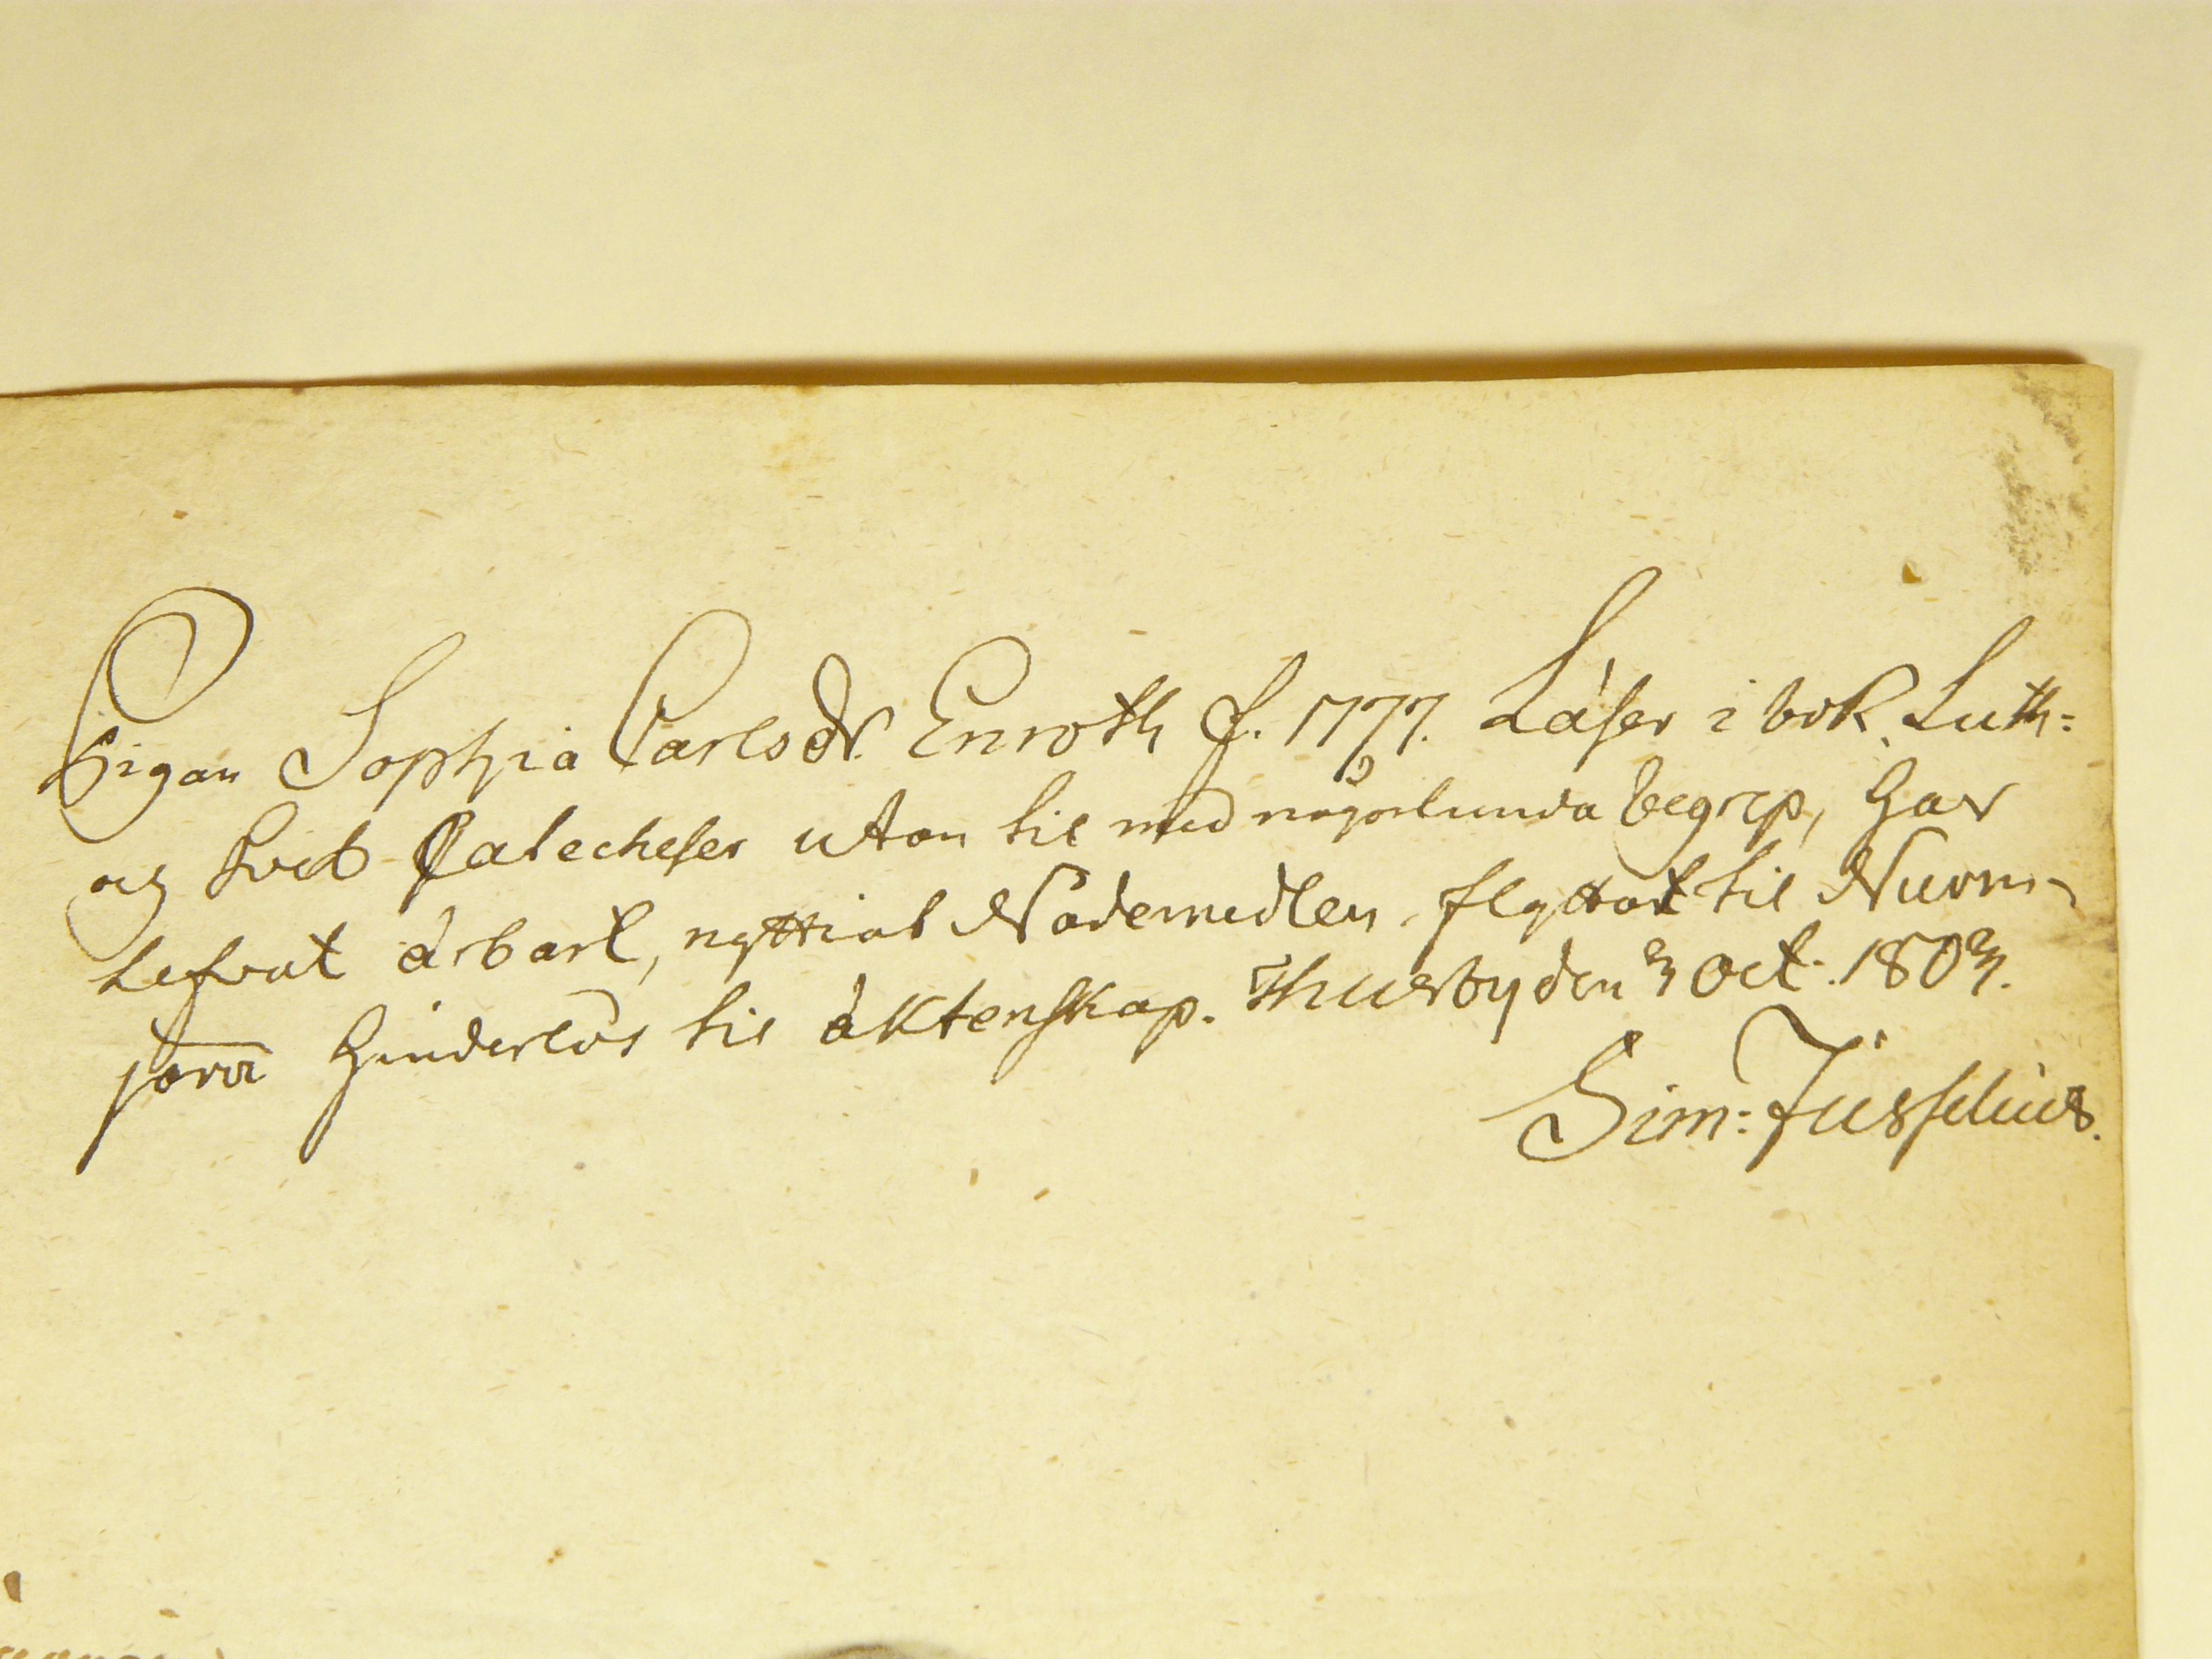 Pigan Sophia Carlsdr. Enroth f. 1777. Läser i bok, Luth:
och Sveb Catecheser utan til med någorlunda begrep, har
lefvat ärbart, nyttiat Nådemedlen, flyttat til Nurm-
järvi hinderlös til äktenskap. Thusby den 3 Oct. 1803.
Sim: Jusselius.